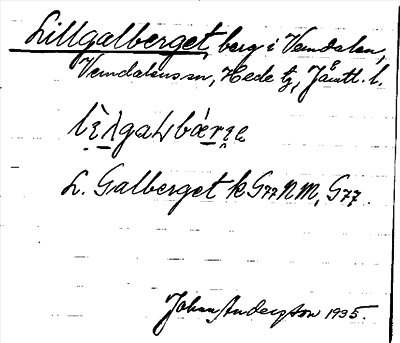 Lillgalberget, berg i Vemdalen,
Vemdalens sn, Hede tg, Jämtl. l.
L. Galberget k G77 NM, G77.
Johan Anderzon 1935.